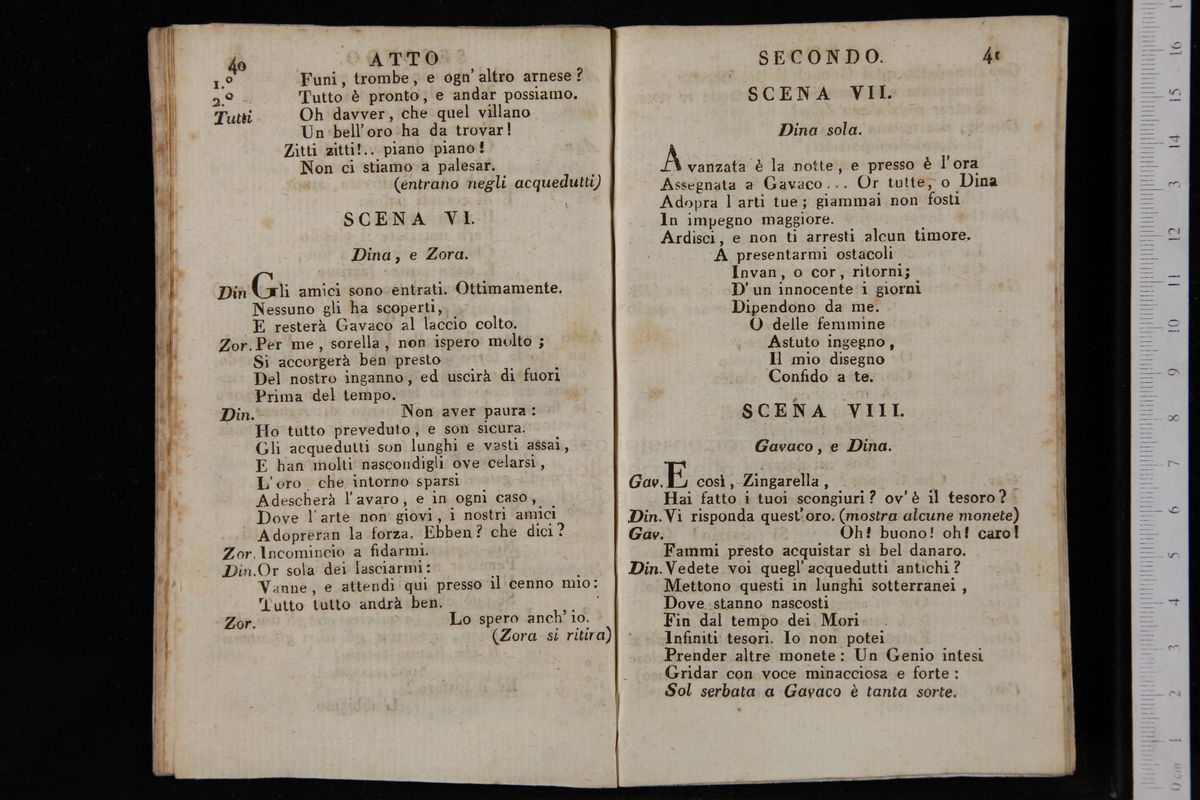 40 ATTO
1.° Funi, trombe, e ogn' altro arnese?
2.° Tutto è pronto, e andar possiamo.
Tutti Oh davver, che quel villano
Un bell'oro ha da trovar!
Zitti zitti!.. piano piano!
Non ci stiamo a palesar.
(entrano negli acquedutti)
SCENA VI.
Dina, e Zora.
Din Gli amici sono entrati. Ottimamente.
Nessuno gli ha scoperti,
E resterà Gavaco al laccio colto.
Zor. Per me, sorella, non ispero molto;
Si accorgerà ben presto
Del nostro inganno, ed uscirà di fuori
Prima del tempo.
Din. Non aver paura:
Ho tutto preveduto, e son sicura.
Gli acquedutti son lunghi e vasti assai,
E han molti nascondigli ove celarsi,
L'oro che intorno sparsi
Adescherà l'avaro, e in ogni caso,
Dove l'arte non giovi, i nostri amici
Adopreran la forza. Ebben? che dici?
Zor. Incomincio a fidarmi.
Din. Or sola dei lasciarmi:
Vanne, e attendi qui presso il cenno mio:
Tutto tutto andrà ben.
Zor. Lo spero anch' io.
(Zora si ritira)
SECONDO. 41
SCENA VII.
Dina sola.
Avanzata è la notte, e presso è l'ora
Assegnata a Gavaco... Or tutte, o Dina
Adopra l arti tue; giammai non fosti
In impegno maggiore.
Ardisci, e non ti arresti alcun timore.
A presentarmi ostacoli
Invan, o cor, ritorni;
D'un innocente i giorni
Dipendono da me.
O delle femmine
Astuto ingegno,
Il mio disegno
Confido a te.
SCENA VIII.
Gavaco, e Dina.
Gav. E così, Zingarella,
Hai fatto i tuoi scongiuri? ov'è il tesoro?
Din. Vi risponda quest'oro. (mostra alcune monete)
Gav. Oh! buono! oh! caro!
Fammi presto acquistar sì bel danaro.
Din. Vedete voi quegl'acquedutti antichi?
Mettono questi in lunghi sotterranei,
Dove stanno nascosti
Fin dal tempo dei Mori
Infiniti tesori. Io non potei
Prender altre monete: Un Genio intesi
Gridar con voce minacciosa e forte:
Sol serbata a Gavaco è tanta sorte.
0 cm 1 2 3 4 5 6 7 8 9 10 11 12 13 14 15 16 17